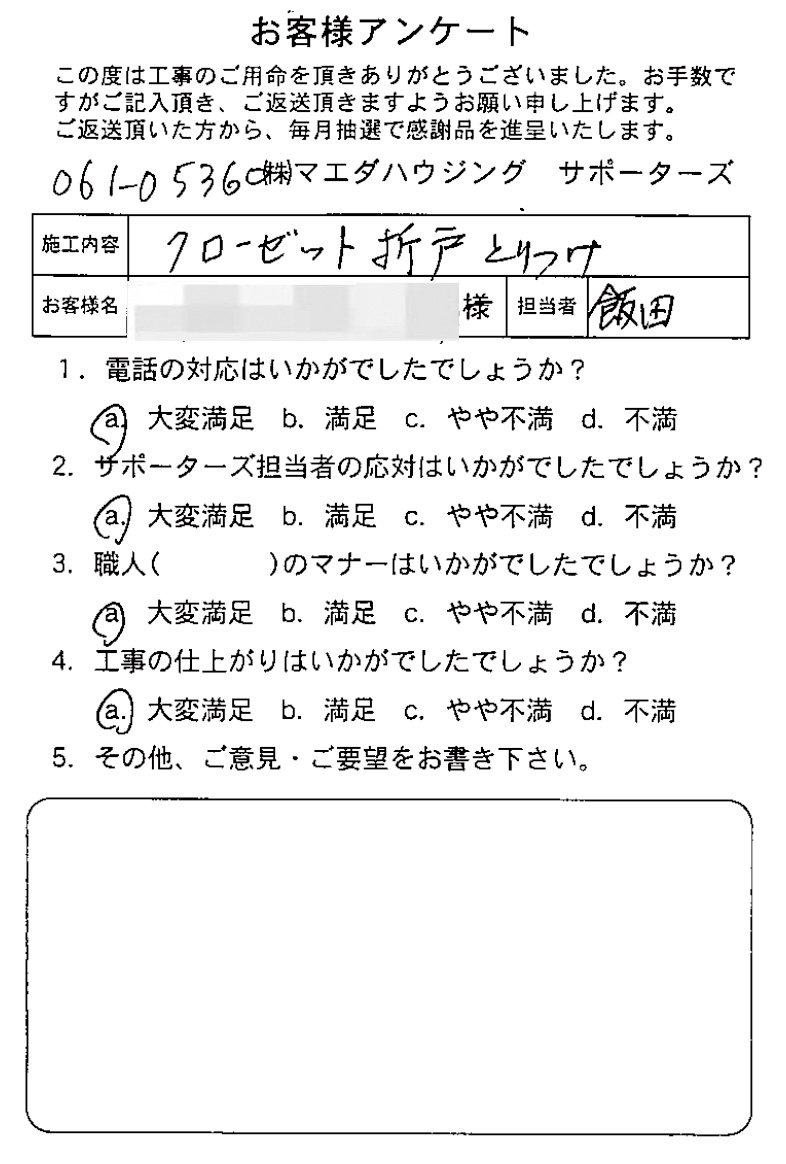 お客様アンケート
この度は工事のご用命を頂きありがとうございました。お手数で
すがご記入頂き、ご返送頂きますようお願い申し上げます。
ご返送頂いた方から、毎月抽選で感謝品を進呈いたします。
061-0536 ㈱マエダハウジング サポーターズ
施工内容 クローゼット折戸とりつけ
お客様名 様 担当者 飯田
1. 電話の対応はいかがでしたでしょうか？
a. 大変満足 b. 満足 c. やや不満 d. 不満
2. サポーターズ担当者の応対はいかがでしたでしょうか？
a. 大変満足 b. 満足 c. やや不満 d. 不満
3. 職人( )のマナーはいかがでしたでしょうか？
a. 大変満足 b. 満足 c. やや不満 d. 不満
4. 工事の仕上がりはいかがでしたでしょうか？
a. 大変満足 b. 満足 c. やや不満 d. 不満
5. その他、ご意見・ご要望をお書き下さい。